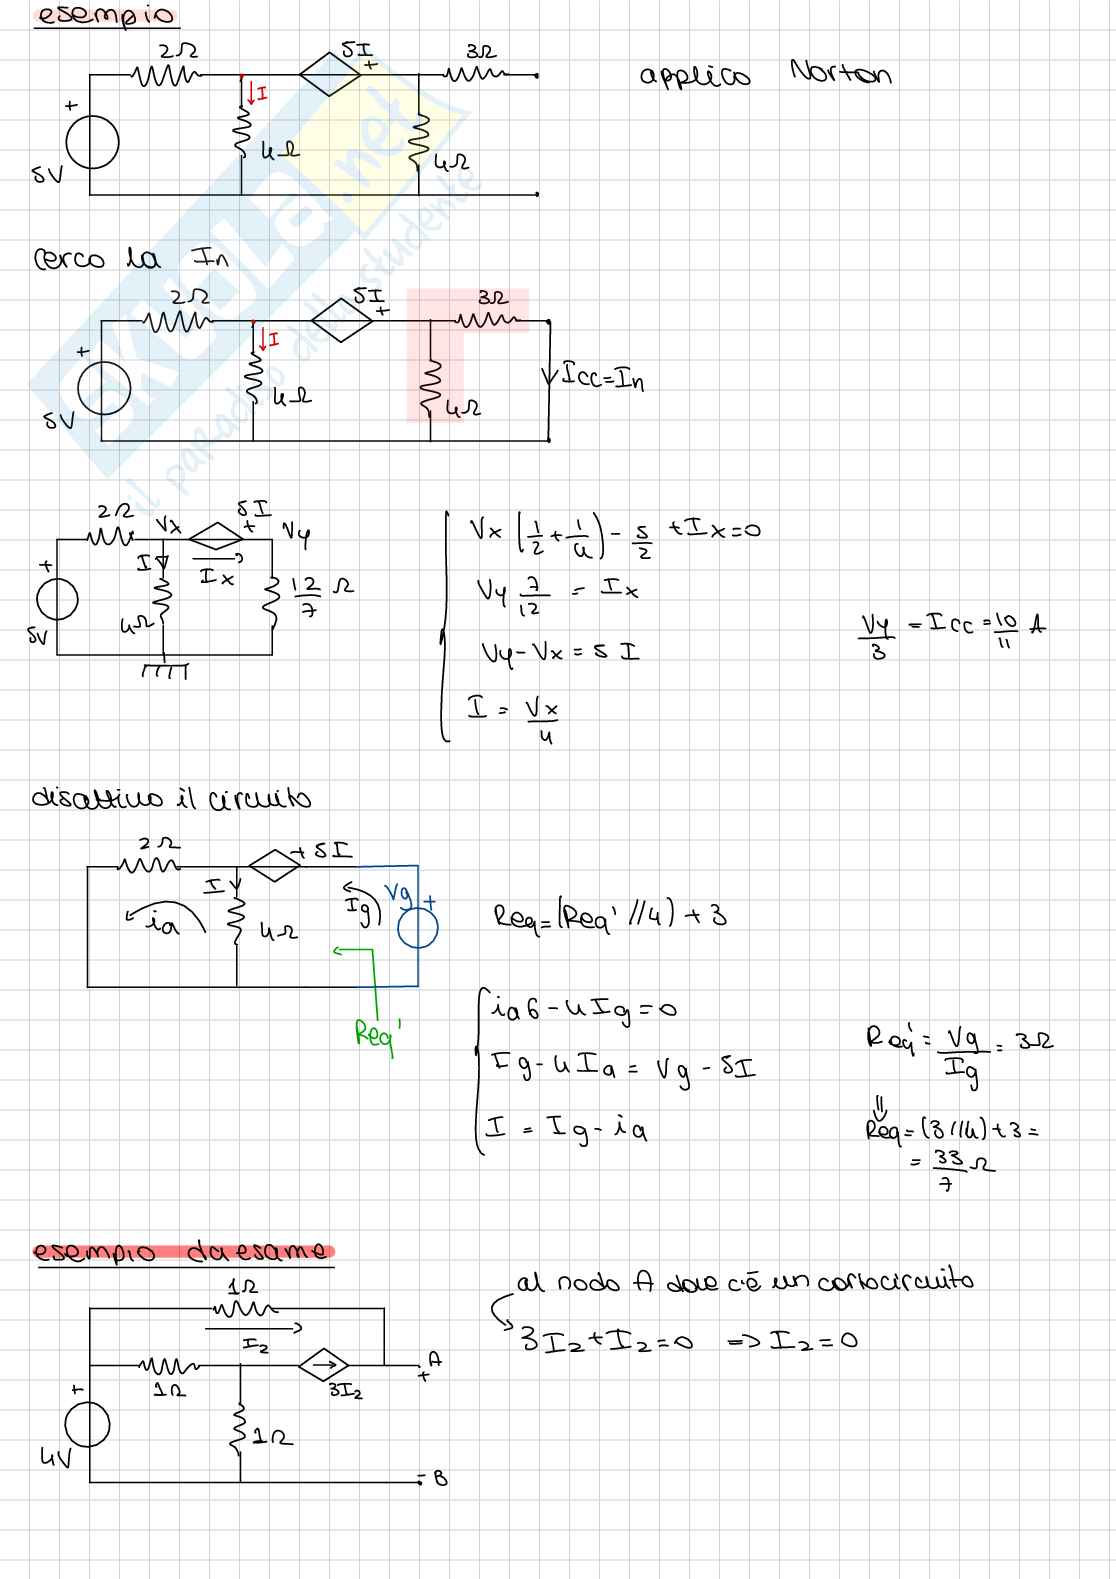 esempio
2Ω 5I + 3Ω
applico Norton
+ I
4Ω 4Ω
5V
SKUOLA.net
il paradiso dello studente
cerco la In
2Ω 5I + 3Ω
+ I
4Ω 4Ω
Icc=In
5V
2Ω Vx 5I + Vy
+ I Ix
4Ω 12/7 Ω
5V
Vx (1/2 + 1/4) - 5/2 + Ix = 0
Vy 7/12 = Ix
Vy - Vx = 5 I
I = Vx/4
Vy/3 = Icc = 10/11 A
disattivo il circuito
2Ω + 5I
I Ig Vg +
ia 4Ω
Req'
Req = (Req' // 4) + 3
ia6 - 4Ig = 0
Ig - 4Ia = Vg - 5I
I = Ig - ia
Req' = Vg/Ig = 3Ω
⇓
Req = (3//4) + 3 =
= 33/7 Ω
esempio da esame
1Ω
I2
1Ω 3I2 A
+ +
1Ω
4V
- B
al nodo A dove c'è un cortocircuito
3I2 + I2 = 0 => I2 = 0